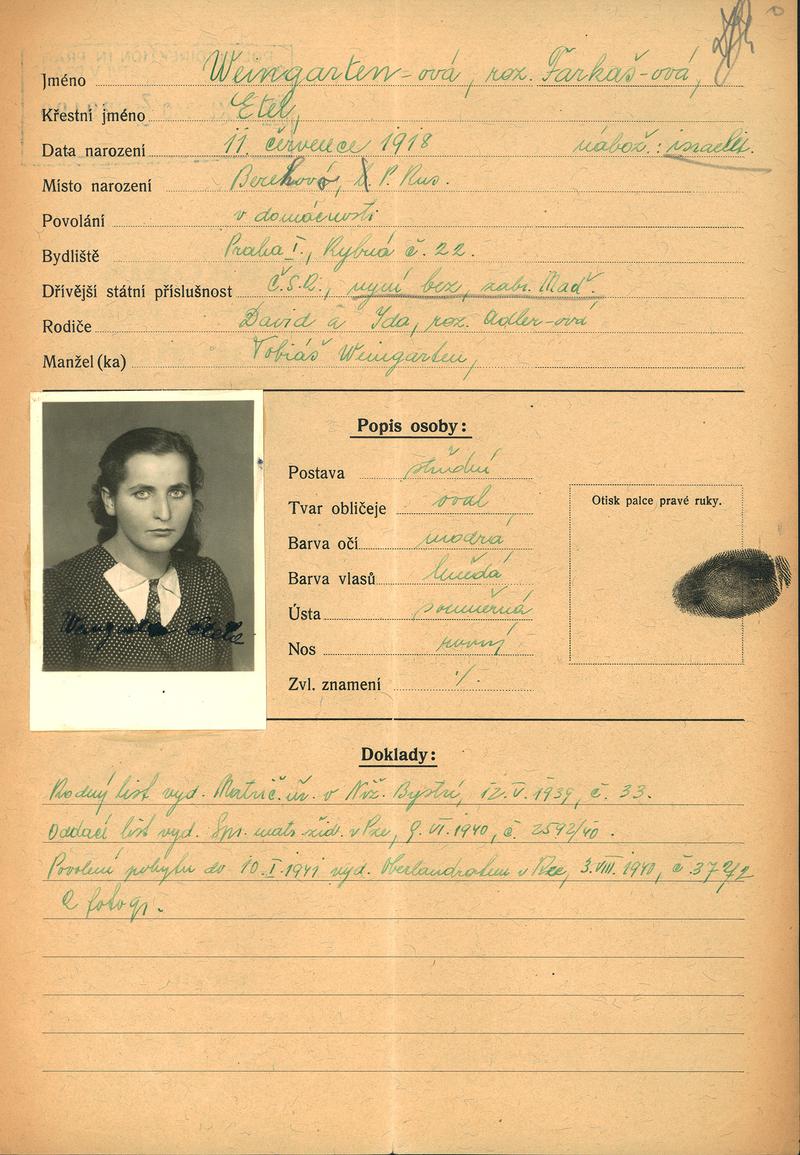 Jméno Weingarten-ová, roz. Farkaš-ová,
Křestní jméno Etel,
Data narození 11. července 1918 nábož.: israelit.
Místo narození Berehovo, P. Rus.
Povolání v domácnosti
Bydliště Praha I., Rybná č. 22.
Dřívější státní příslušnost Č.S.R., nyní bez, zabr. Maď.
Rodiče David a Ida, roz. Adler-ová
Manžel (ka) Tobiáš Weingarten,
Popis osoby:
Postava střední
Tvar obličeje oval
Barva očí modrá
Barva vlasů hnědá
Ústa souměrná
Nos rovný
Zvl. znamení ./.
Otisk palce pravé ruky.
Doklady:
Rodný list vyd. Matrič. úř. v Niž. Bystrí, 12.V.1939, č. 33.
Oddací list vyd. Spr. matr. žid. v Pze, 9.VI.1940, č. 2592/40.
Povolení pobytu do 10.I.1941 vyd. Oberlandratem v Pze, 3.VIII.1940, č.
2 fotogr.